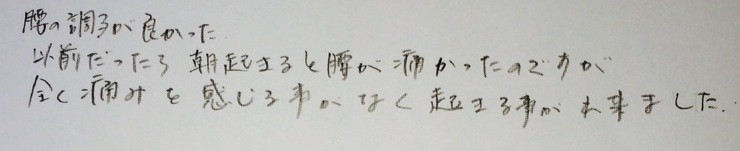 腰の調子が良かった
以前だったら朝起きると腰が痛かったのですが
全く痛みを感じる事がなく起きる事が出来ました.